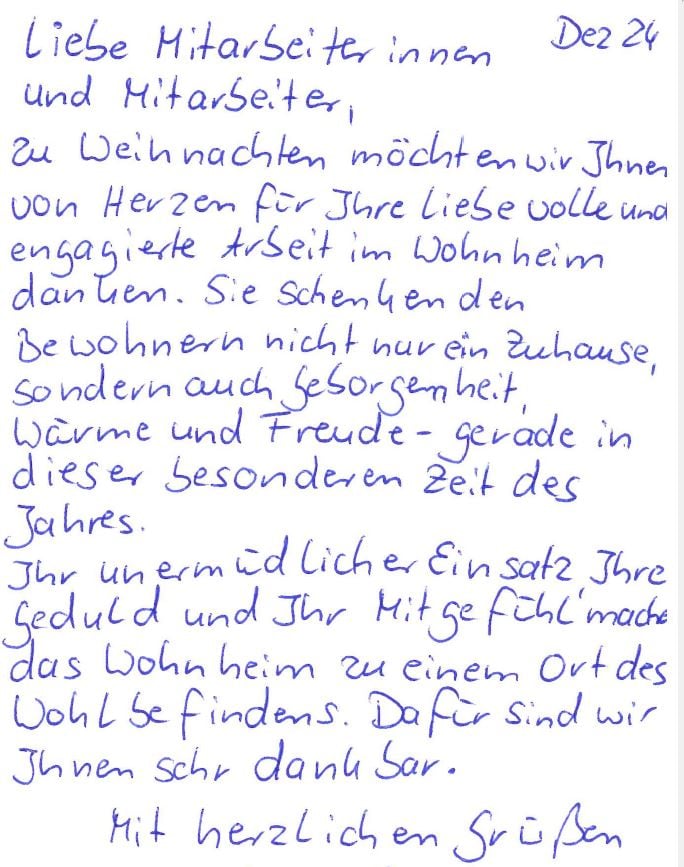 Dez 24
Liebe Mitarbeiterinnen
und Mitarbeiter,
zu Weihnachten möchten wir Ihnen
von Herzen für Ihre liebevolle und
engagierte Arbeit im Wohnheim
danken. Sie schenken den
Bewohnern nicht nur ein Zuhause,
sondern auch Geborgenheit,
Wärme und Freude - gerade in
dieser besonderen Zeit des
Jahres.
Ihr unermüdlicher Einsatz, Ihre
Geduld und Ihr Mitgefühl mache
das Wohnheim zu einem Ort des
Wohlbefindens. Dafür sind wir
Ihnen sehr dankbar.
Mit herzlichen Grüßen